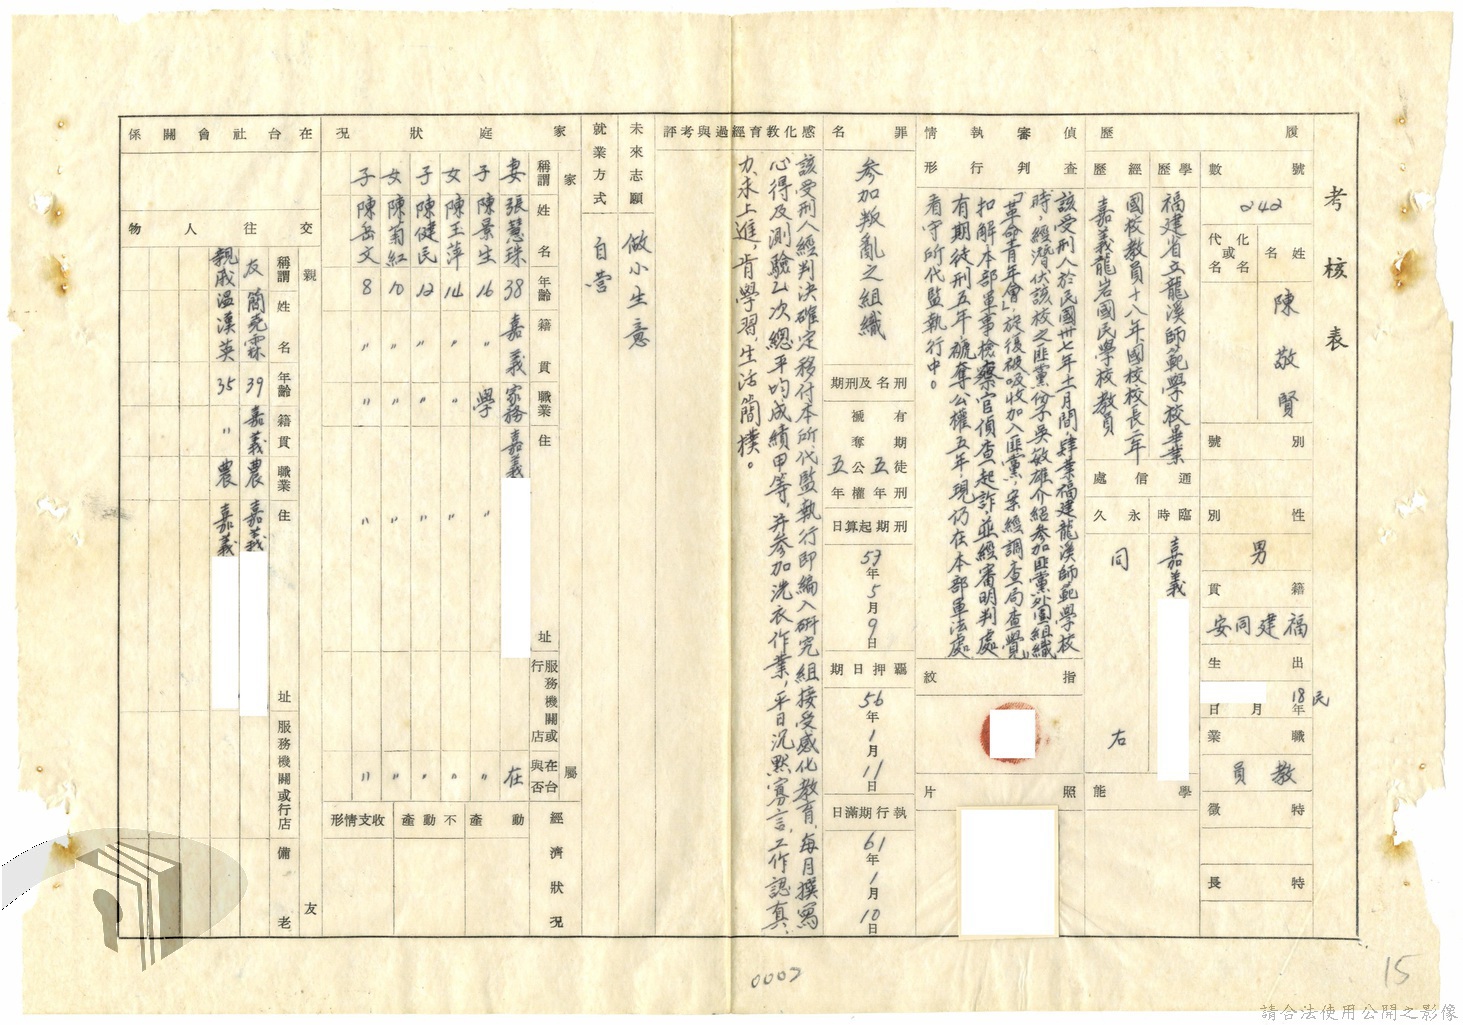 考核表
履歷
號數
242
姓名
陳敬賢
化名或代名
別號
性別
男
籍貫
福建同安
出生
民18年
月
日
職業
教員
特徵
特長
學歷
福建省立龍溪師範學校畢業
經歷
國校教員十八年、國校校長二年
嘉義龍岩國民學校教員
通信處
臨時
嘉義
永久
同右
學能
偵查審判執行情形
該受刑人於民國卅七年十二月間，肄業福建龍溪師範學校
時，經潛伏該校之匪黨份子吳敏雄介紹參加匪黨外圍組織
「革命青年會」，旋復被吸收加入匪黨，案經調查局查覺，
扣解本部軍事檢察官偵查起訴並經審明判處
有期徒刑五年，褫奪公權五年，現仍在本部軍法處
看守所代監執行中。
指紋
照片
罪名
參加叛亂之組織
刑名及刑期
有期徒刑五年
褫奪公權五年
刑期起算日
53年5月9日
羈押日期
56年1月11日
執行期滿日
61年1月10日
感化教育經過與考評
該受刑人經判決確定移付本所代監執行即編入研究組接受感化教育，每月撰寫
心得及測驗乙次總平均成績甲等，并參加洗衣作業，平日沉默寡言，工作認真、
力求上進，肯學習，生活簡樸。
未來志願
做小生意
就業方式
自營
家庭狀況
家屬
稱謂 姓名 年齡 籍貫 職業 住址 服務機關或行店 在台與否
妻 張慧珠 38 嘉義 家務 嘉義 在
子 陳景生 16 〃 學 〃 〃
女 陳玉萍 14 〃 〃 〃 〃
子 陳健民 12 〃 〃 〃 〃
女 陳菊紅 10 〃 〃 〃 〃
子 陳岳文 8 〃 〃 〃 〃
經濟狀況
動產
不動產
收支情形
在台社會關係
交往人物
親友
稱謂 姓名 年齡 籍貫 職業 住址 服務機關或行店 備老
友 簡堯霖 39 嘉義 農 嘉義
親戚 溫漢英 35 〃 農 嘉義
0007
15
請合法使用公開之影像